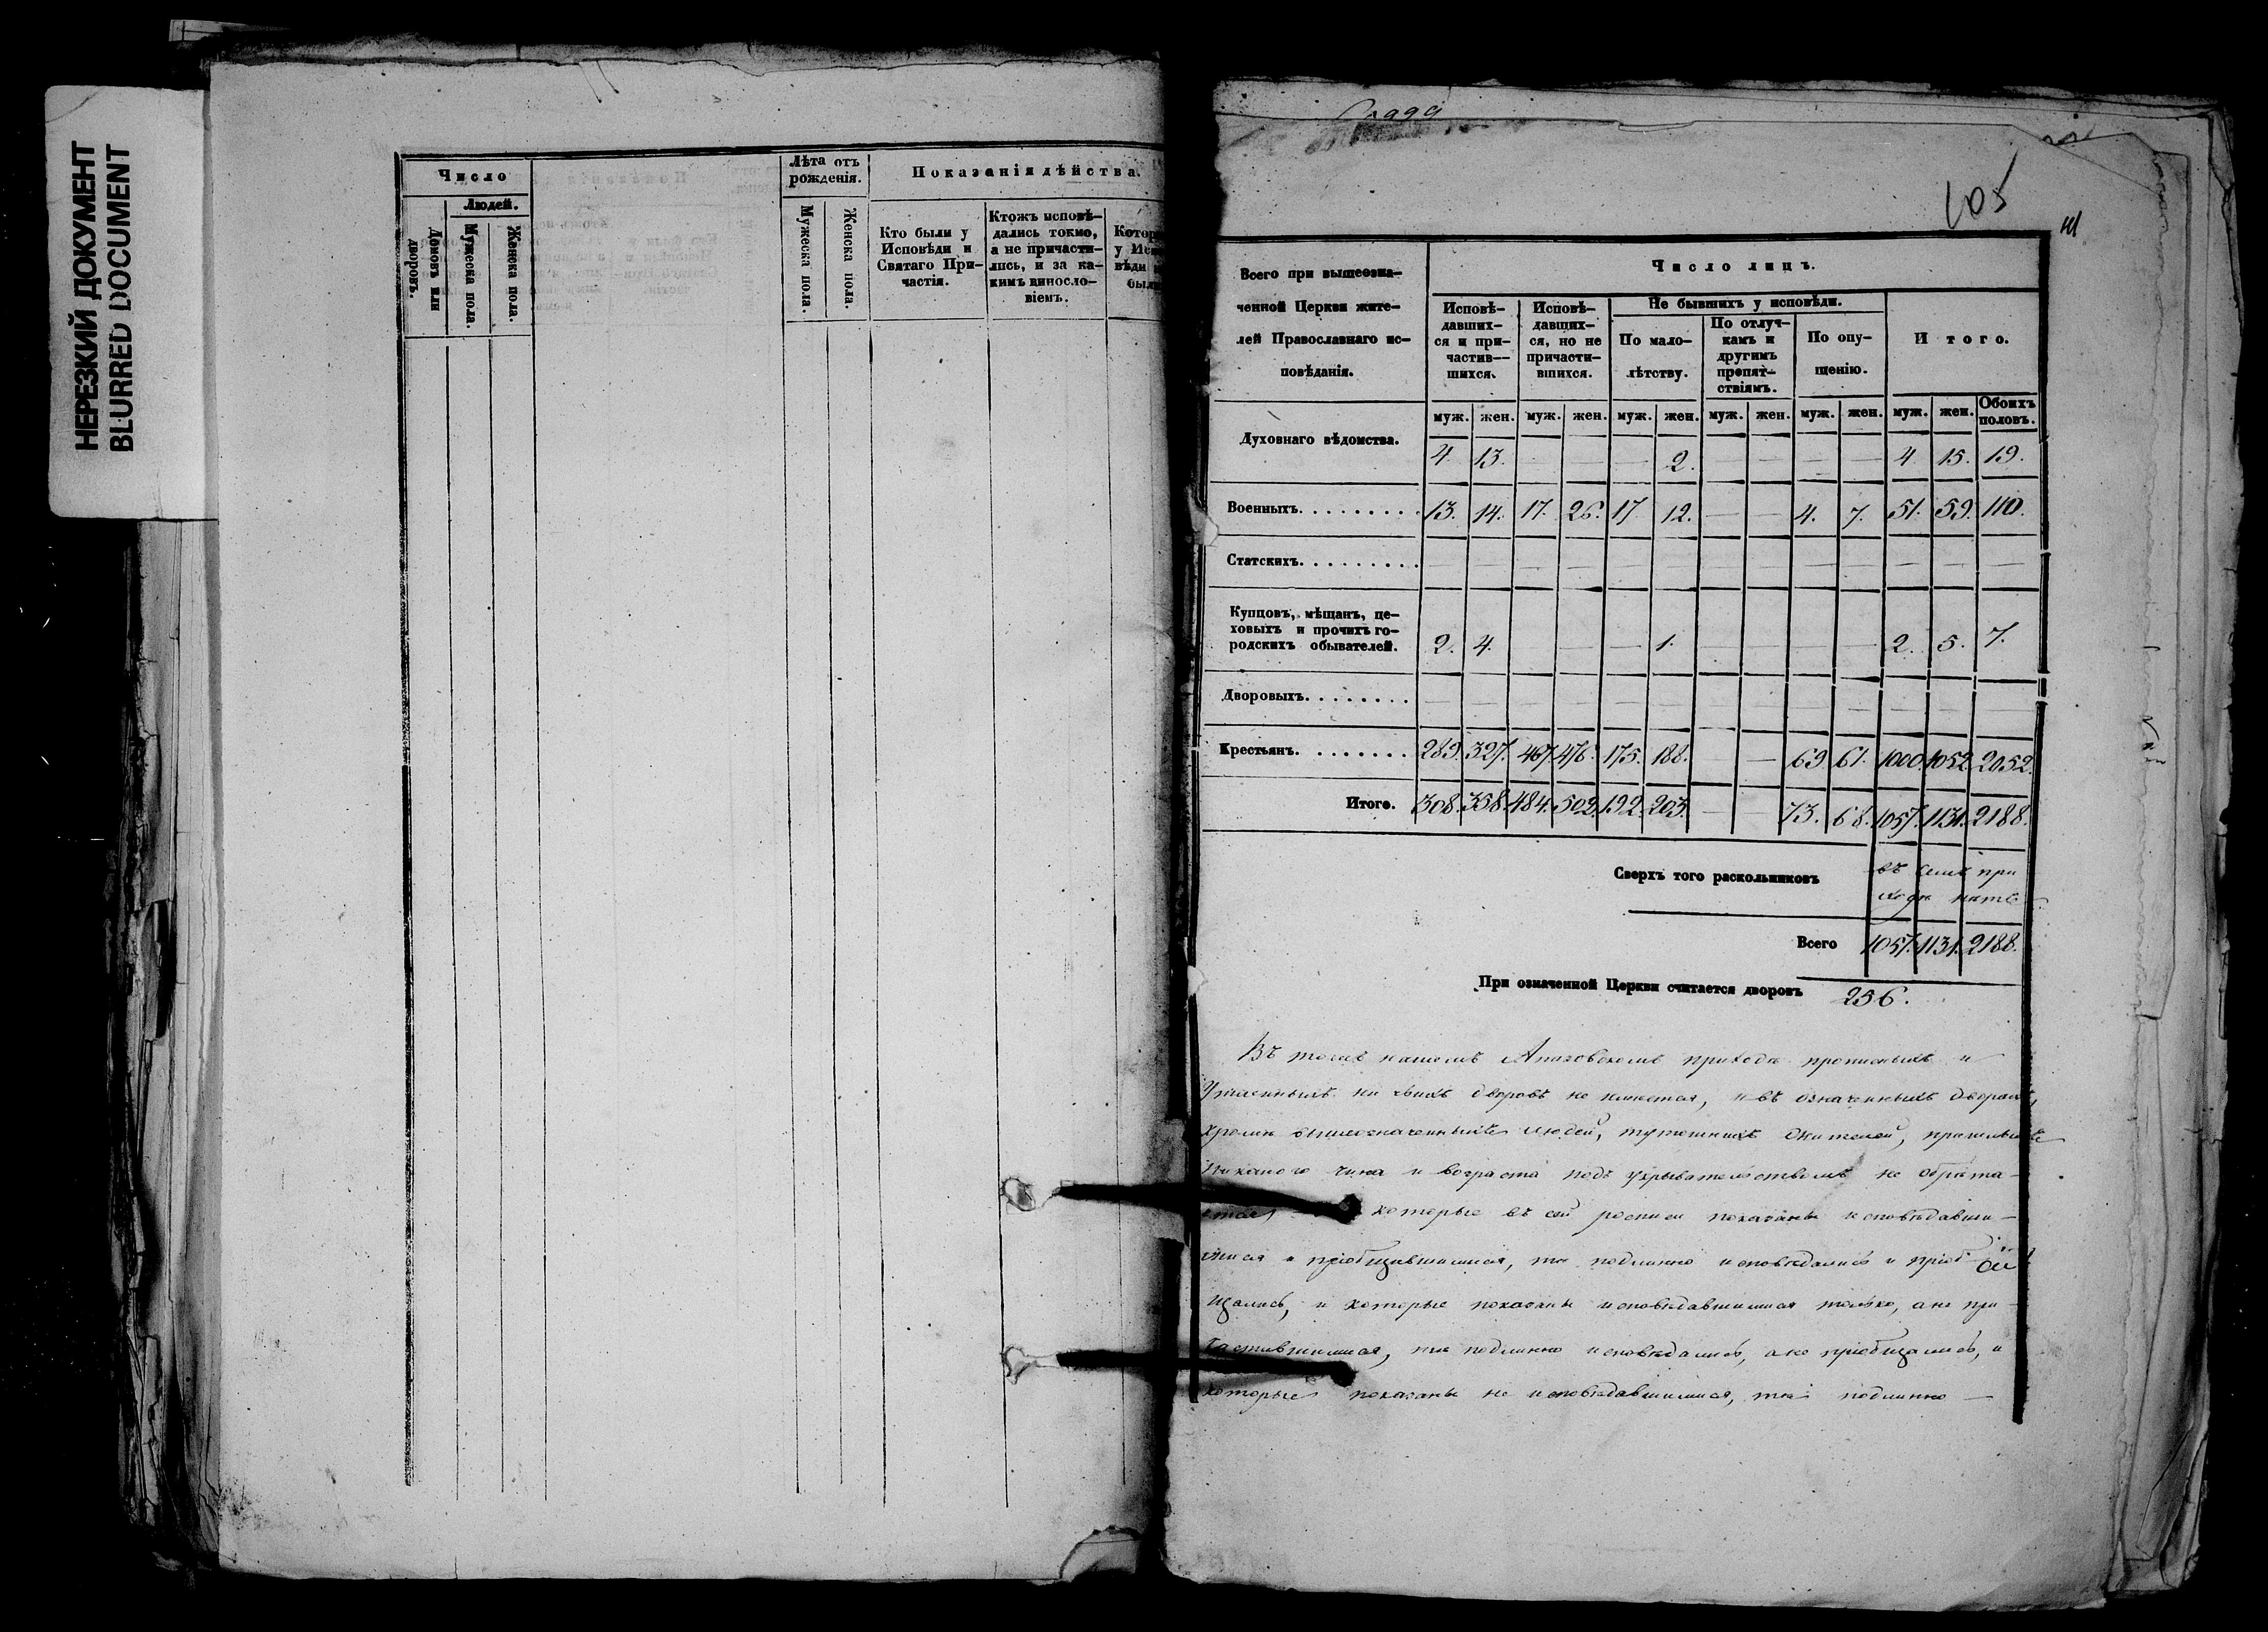 НЕРЕЗКИЙ ДОКУМЕНТ
BLURRED DOCUMENT
Число
Людей.
Домовъ или дворовъ.
Мужеска пола.
Женска пола.
Лѣта отъ рожденія.
Мужеска пола.
Женска пола.
Показанія дѣйства.
Кто были у
Исповѣди и
Святаго При-
частія.
Ктожъ исповѣ-
дались токмо,
а не причасти-
лись, и за ка-
кимъ винносло-
віемъ.
Котор
у Исп
вѣди
был
105
Всего при вышеозна-
ченной Церкви жите-
лей Православнаго ис-
повѣданія.
Число лицъ.
Исповѣ-
давших-
ся и при-
частив-
шихся.
Исповѣ-
давших-
ся, но не
причасти-
вшихся.
Не бывшихъ у исповѣди.
По мало-
лѣтству.
По отлуч-
камъ и
другимъ
препят-
ствіямъ.
По опу-
щенію.
Итого.
муж. жен. муж. жен. муж. жен. муж. жен. муж. жен. муж. жен. Обоихъ половъ.
Духовнаго вѣдомства. 4 13. — — — 2. — — — — 4 15. 19.
Военныхъ. 13. 14. 17. 26. 17 12. — — 4. 7. 51. 59. 110.
Статскихъ. — — — — — — — — — — — — —
Купцовъ, мѣщанъ, це-
ховыхъ и прочихъ го-
родскихъ обывателей. 2. 4. — — — 1. — — — — 2. 5. 7.
Дворовыхъ. — — — — — — — — — — — — —
Крестьянъ. 289. 327. 467. 476. 175. 188. — — 69 61. 1000. 1052. 2052.
Итого. 308. 358. 484. 502. 192. 203. — — 73. 68. 1057. 1131. 2188.
Сверхъ того раскольниковъ въ семъ при
ходѣ нѣтъ
Всего 1057. 1131. 2188.
При означенной Церкви считается дворовъ 256.
Въ нашемъ приходѣ прописныхъ и
утаенныхъ ни чьихъ дворовъ не имѣется, и въ означенныхъ дворахъ,
кромѣ вышеозначенныхъ людей, тутошнихъ жителей, пришлыхъ
никакого чина и возраста подъ укрывательствомъ не обрѣта-
ется которые въ сей росписи показаны исповѣдавши-
мися и пріобщившимися, тѣ подлинно исповѣдались и пріоб-
щались, и которые показаны исповѣдавшимися только, а не при-
частившимися, тѣ подлинно исповѣдались, а не пріобщались, и
которые показаны не исповѣдавшимися, тѣ подлинно